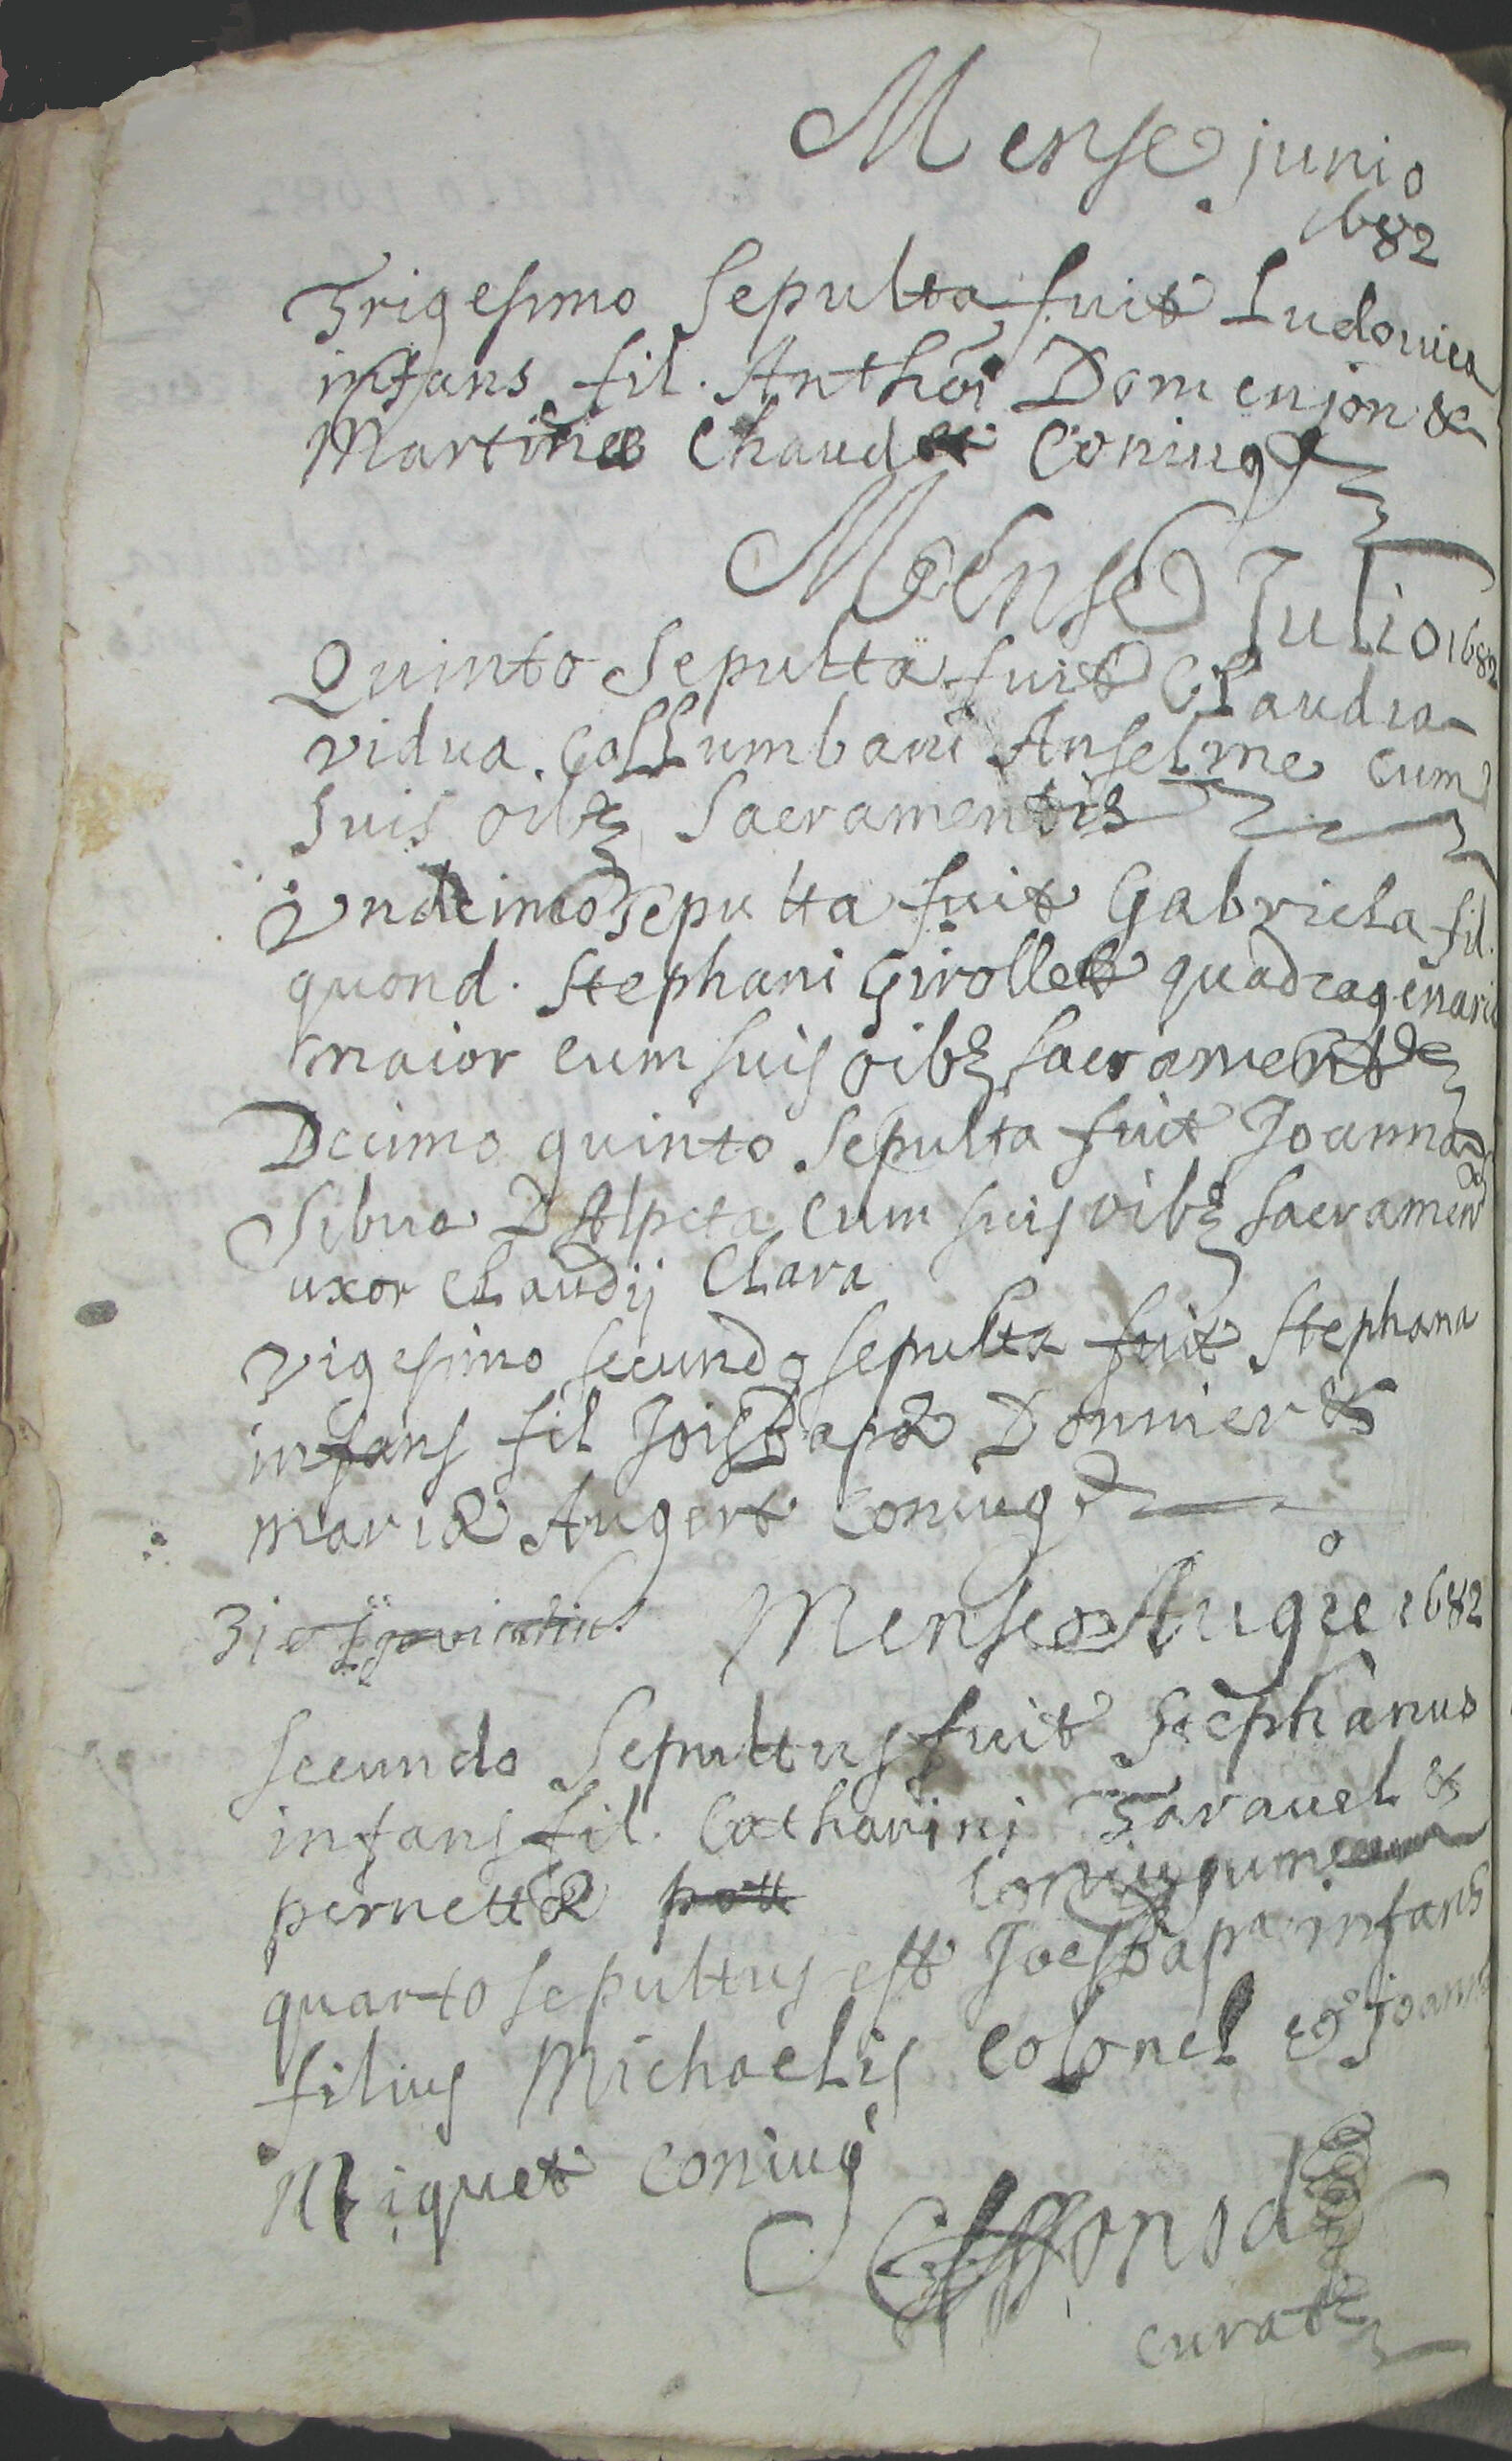 Mense junio
1682
Trigesimo Sepulta fuit Ludovica
infans fil. Anthōi Domenjon &
Martinæ Chaudet Coniug
Mense Julio 1682
Quinto Sepulta fuit Claudia
vidua Collumbani Anselme cum
suis oibz Sacramentis
Undecimo Sepulta fuit Gabriela fil.
quond. Stephani Girollet quadragenari
maior cum suis oibz sacrament
Decimo quinto Sepulta fuit Joanna
Sibua cum suis oibz sacramen
uxor Claudij Clara
vigesimo secundo sepulta fuit Stephana
infans fil Jois Bapæ Donnier &
mariæ Augert Coniug
31 Mense Auge 1682
secundo Sepultus fuit Stephanus
infans fil. Catharini Taravel &
pernettæ Coniugum
quarto sepultus est Joes bapa infans
filius Michaelis Colonel & Joanna
Miquet Coniug
Curat